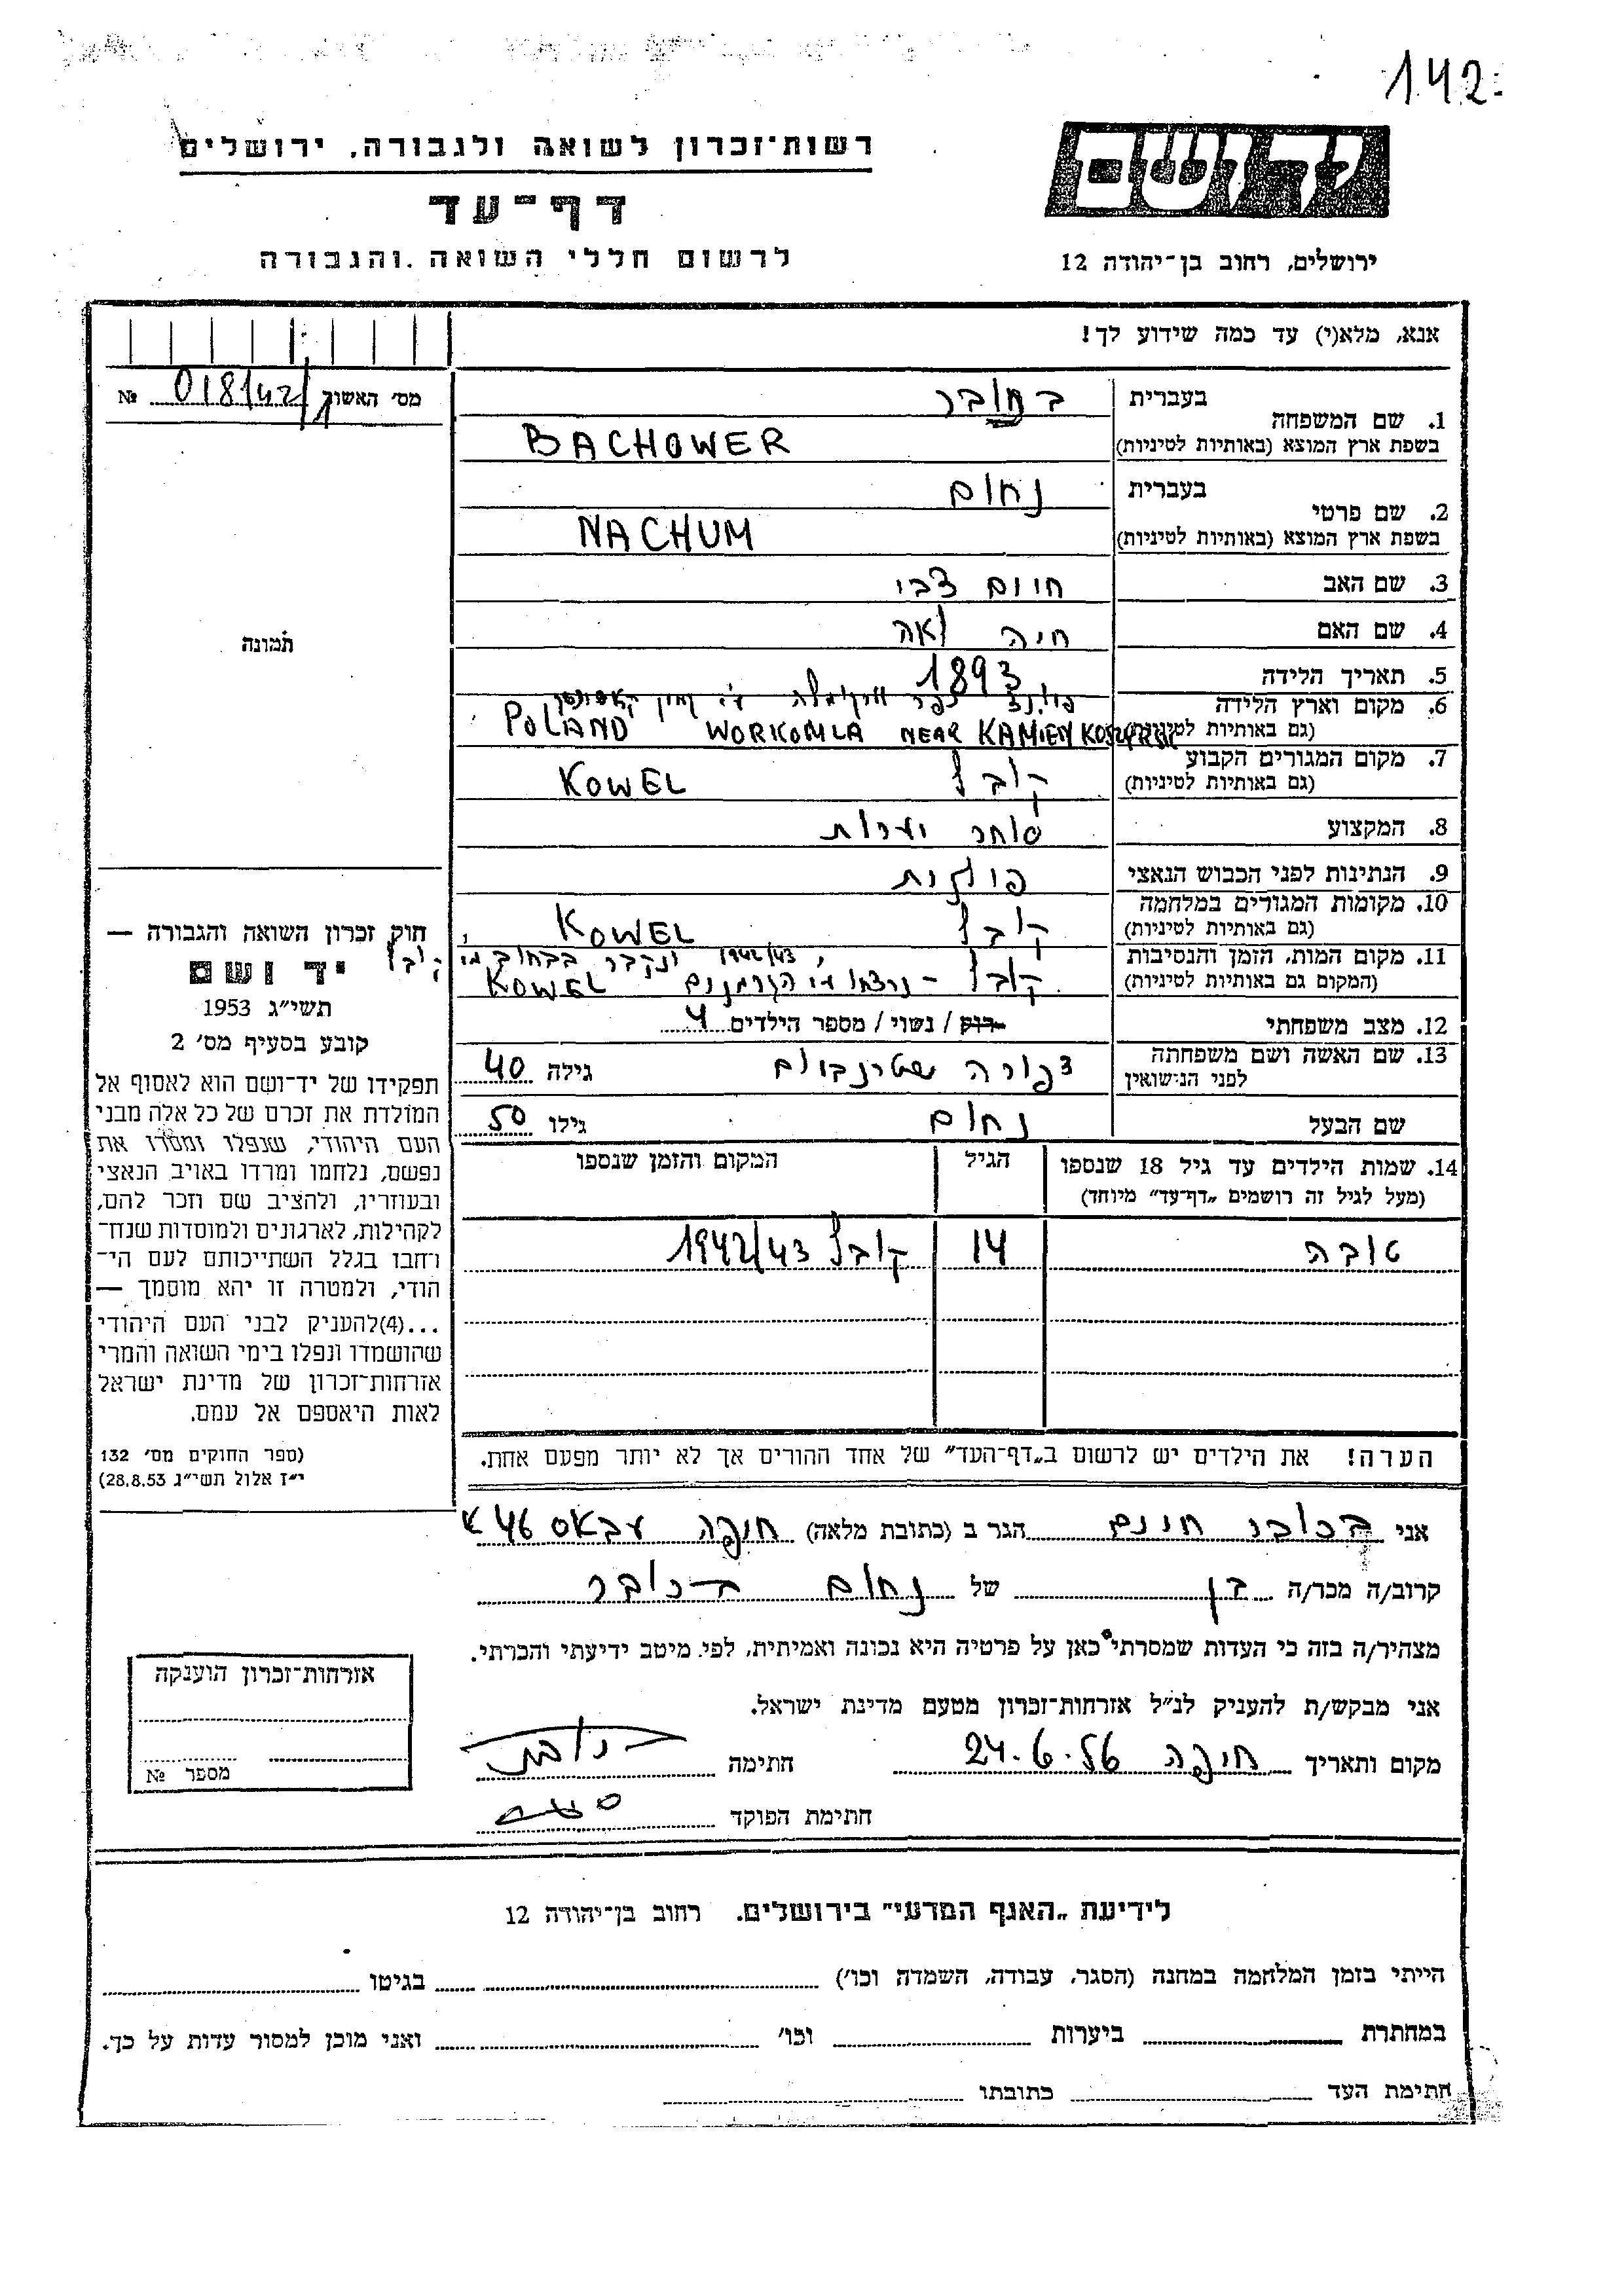 142
רשות־זכרון לשואה ולגבורה, ירושלים
יד ושם
דף־עד
לרשום חללי השואה והגבורה
ירושלים, רחוב בן־יהודה 12
אנא, מלא(י) עד כמה שידוע לך!
מס׳ האשור 018/42/1 №
1. שם המשפחה
בעברית בחובר
בשפת ארץ המוצא (באותיות לטיניות) BACHOWER
2. שם פרטי
בעברית נחום
בשפת ארץ המוצא (באותיות לטיניות) NACHUM
3. שם האב חיים צבי
4. שם האם חיה לאה
5. תאריך הלידה 1893
6. מקום וארץ הלידה פולניה כפר ע״י
(גם באותיות לטיניות) POLAND WORKOMLA NEAR KAMIEN KOSZYRSK
7. מקום המגורים הקבוע
(גם באותיות לטיניות) קובל KOWEL
8. המקצוע סוחר יערות
9. הנתינות לפני הכבוש הנאצי פולנית
10. מקומות המגורים במלחמה
(גם באותיות לטיניות) קובל KOWEL
11. מקום המות, הזמן והנסיבות 1942/43, ונקבר קובל
(המקום גם באותיות לטיניות) קובל – נרצח ע״י הגרמנים KOWEL
12. מצב משפחתי רוק / נשוי / מספר הילדים 4
13. שם האשה ושם משפחתה
לפני הנישואין צפורה שטרנבוים גילה 40
שם הבעל נחום גילו 50
14. שמות הילדים עד גיל 18 שנספו הגיל המקום והזמן שנספו
(מעל לגיל זה רושמים „דף־עד״ מיוחד)
טובה 14 קובל 1942/43
הערה! את הילדים יש לרשום ב„דף־העד״ של אחד ההורים אך לא יותר מפעם אחת.
תמונה
חוק זכרון השואה והגבורה —
יד ושם
תשי״ג 1953
קובע בסעיף מס׳ 2
תפקידו של יד־ושם הוא לאסוף אל
המולדת את זכרם של כל אלה מבני
העם היהודי, שנפלו ומסרו את
נפשם, נלחמו ומרדו באויב הנאצי
ובעוזריו, ולהציב שם וזכר להם,
לקהילות, לארגונים ולמוסדות שנח־
רחבו בגלל השתייכותם לעם הי־
הודי, ולמטרה זו יהא מוסמך —
...(4)להעניק לבני העם היהודי
שהושמדו ונפלו בימי השואה והמרי
אזרחות־זכרון של מדינת ישראל
לאות היאספם אל עמם.
(ספר החוקים מס׳ 132
י״ז אלול תשי״ג 28.8.53)
אני בכובר חיים הגר ב (כתובת מלאה) חיפה עבאס 46 א
קרוב/ה מכר/ה בן של נחום בכובר
מצהיר/ה בזה כי העדות שמסרתי כאן על פרטיה היא נכונה ואמיתית, לפי מיטב ידיעתי והכרתי.
אני מבקש/ת להעניק לנ״ל אזרחות־זכרון מטעם מדינת ישראל.
מקום ותאריך חיפה 24.6.56 חתימה
חתימת הפוקד
אזרחות־זכרון הוענקה
מספר №
לידיעת „האגף המדעי״ בירושלים. רחוב בן־יהודה 12
הייתי בזמן המלחמה במחנה (הסגר, עבודה, השמדה וכו׳) בגיטו
במחתרת ביערות וכו׳ ואני מוכן למסור עדות על כך.
חתימת העד כתובתו